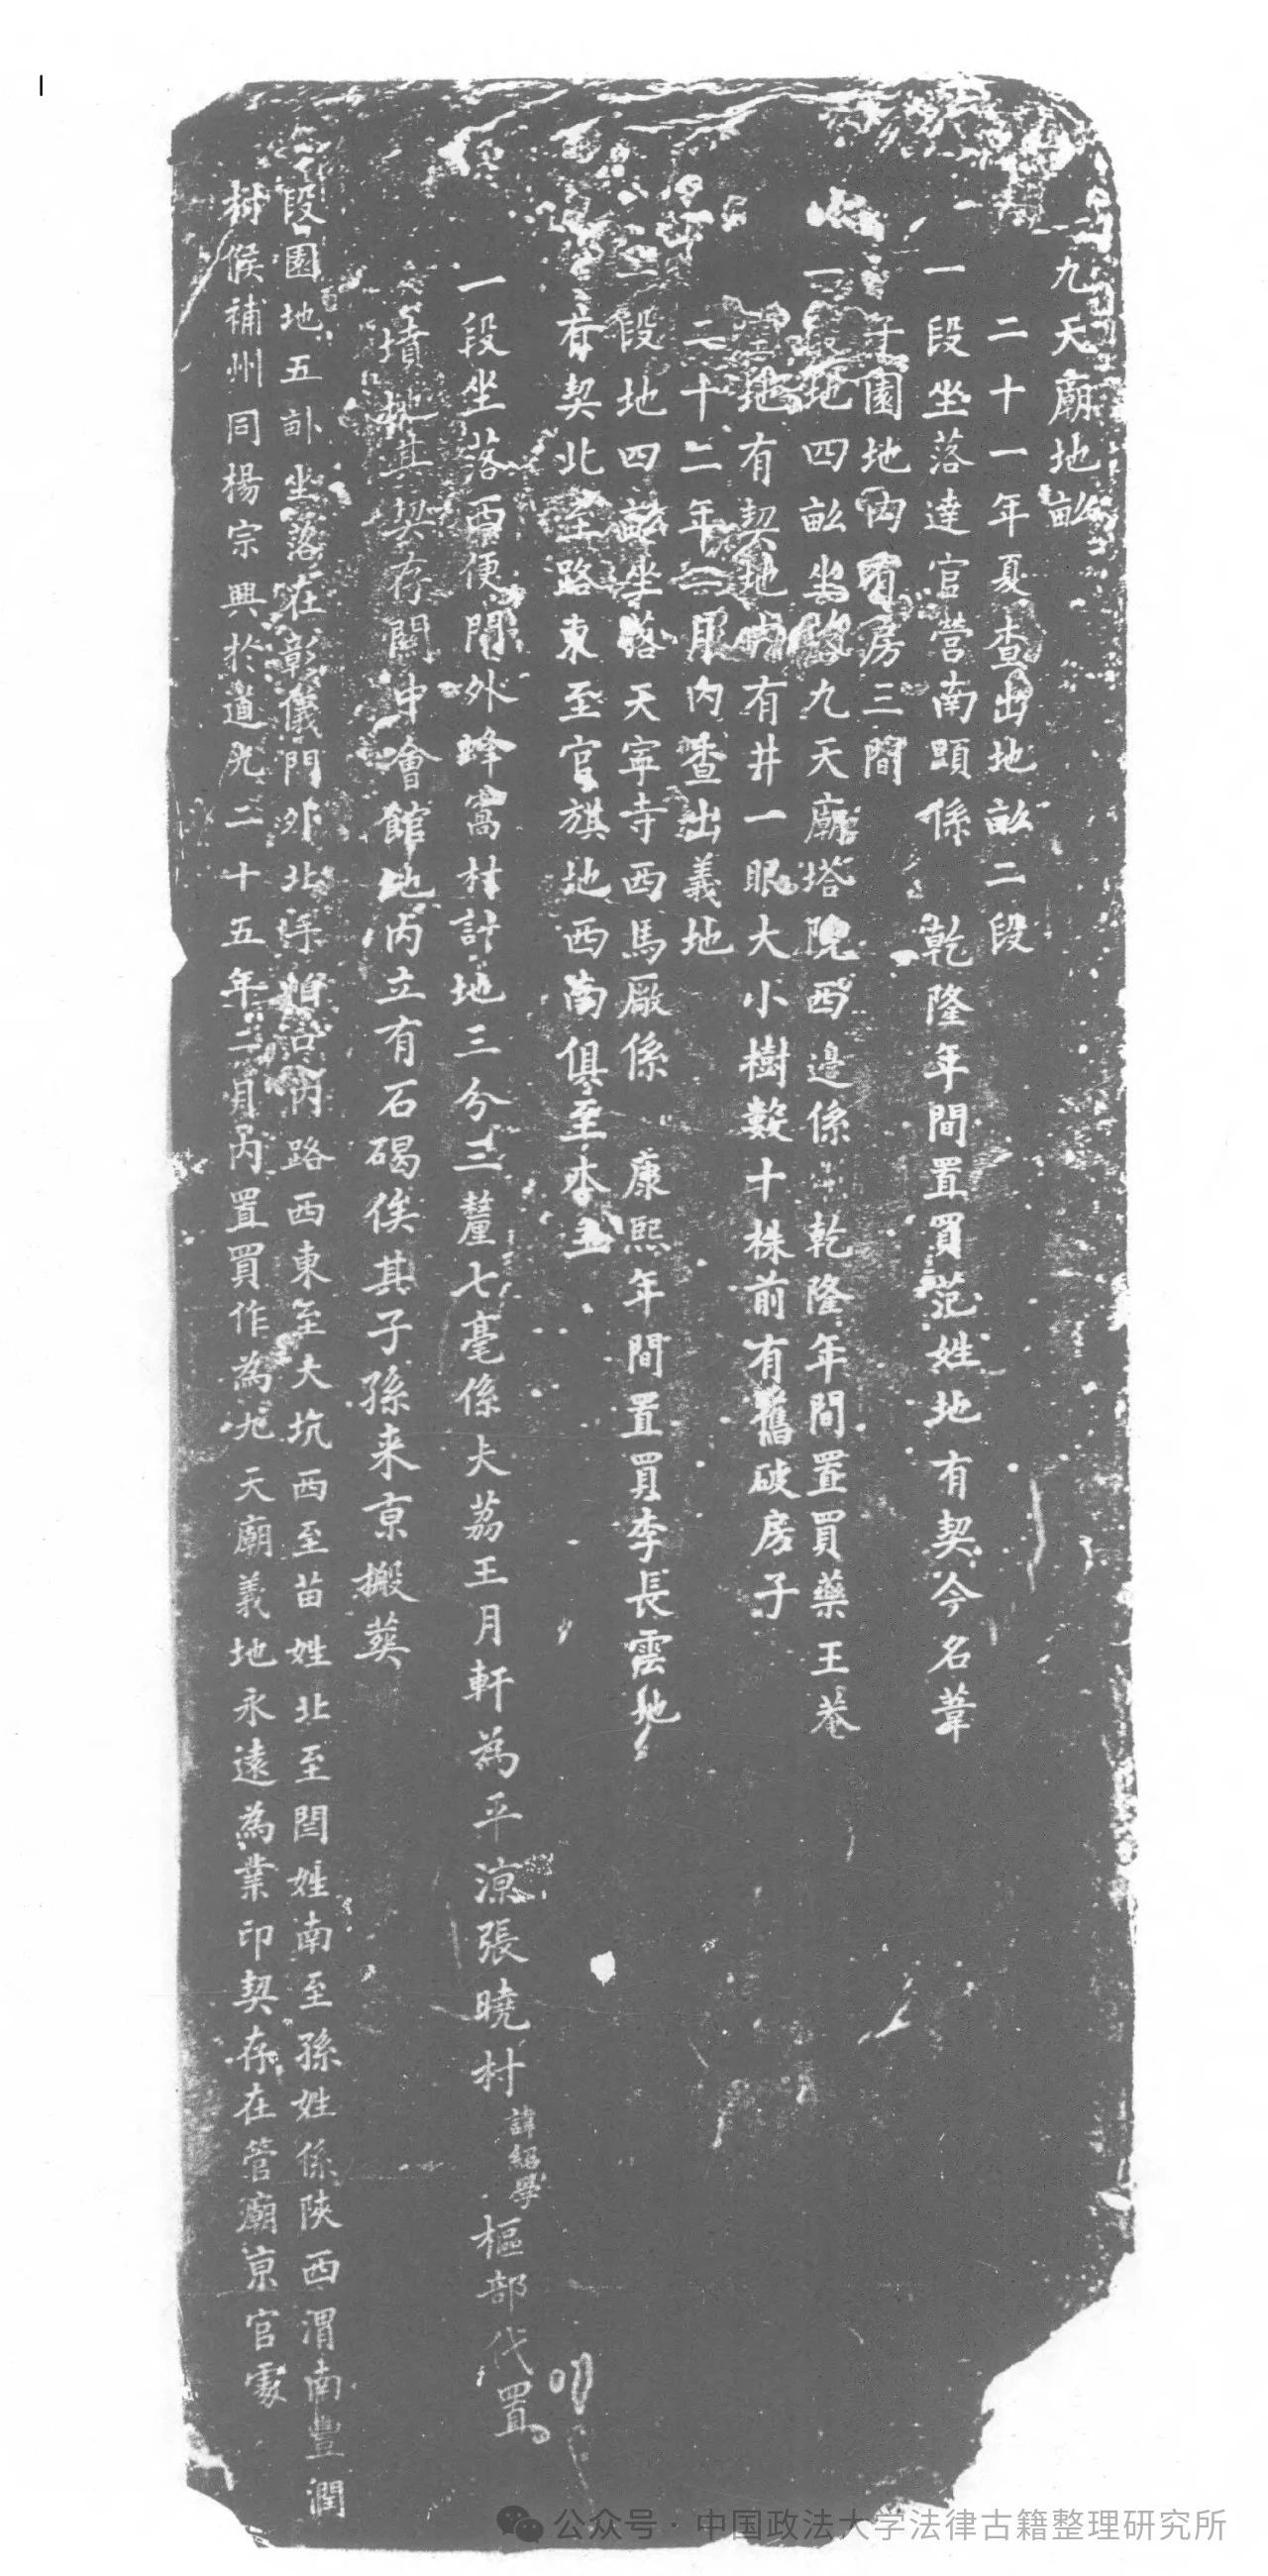 九天廟地畝
二十一年夏查出地畝二段
一段坐落達官營南頭係 乾隆年間置買范姓地有契今名葦
子園地內有房三間
一段地四畝坐落九天廟塔院西邊係 乾隆年間置買藥王菴
地有契地內有井一眼大小樹數十株前有舊破房子
二十二年二月內查出義地
一段地四畝坐落天寧寺西馬廠係 康熙年間置買李長雲地
有契北至路東至官旗地西南俱至本主
一段坐落西便門外蜂窩村計地三分三釐七毫係大荔王月軒為平涼張曉村諱紹學樞部代置
墳地其契存關中會館地內立有石碣俟其子孫来京搬葬
段園地五畝坐落在彰儀門外北手 內路西東至大坑西至苗姓北至閆姓南至孫姓係陝西渭南豐潤
村候補州同楊宗興於道光二十五年二月內置買作為九天廟義地永遠為業印契存在管廟京官處
公众号·中国政法大学法律古籍整理研究所